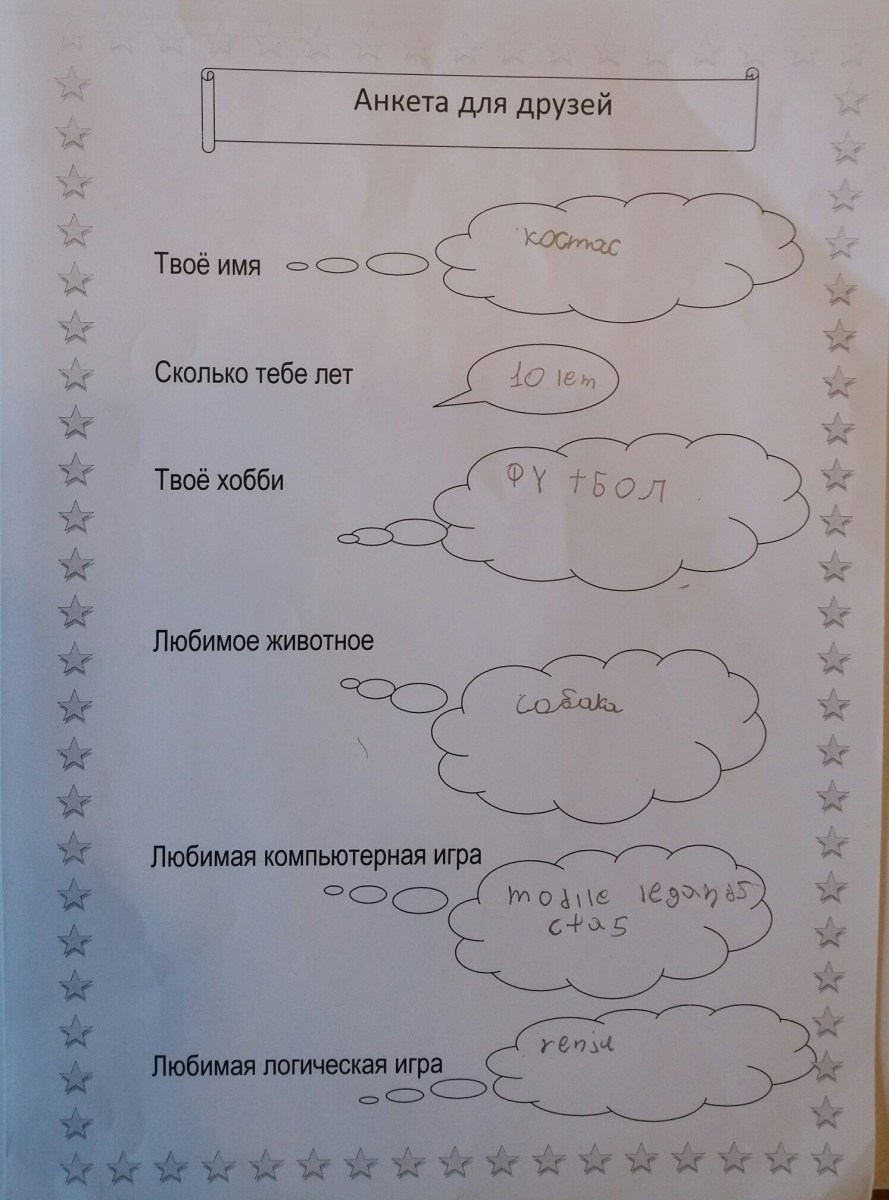 Анкета для друзей
Твоё имя
костас
Сколько тебе лет
10 lет
Твоё хобби
ФУтБОЛ
Любимое животное
собака
Любимая компьютерная игра
modile legands
ctas
Любимая логическая игра
renju